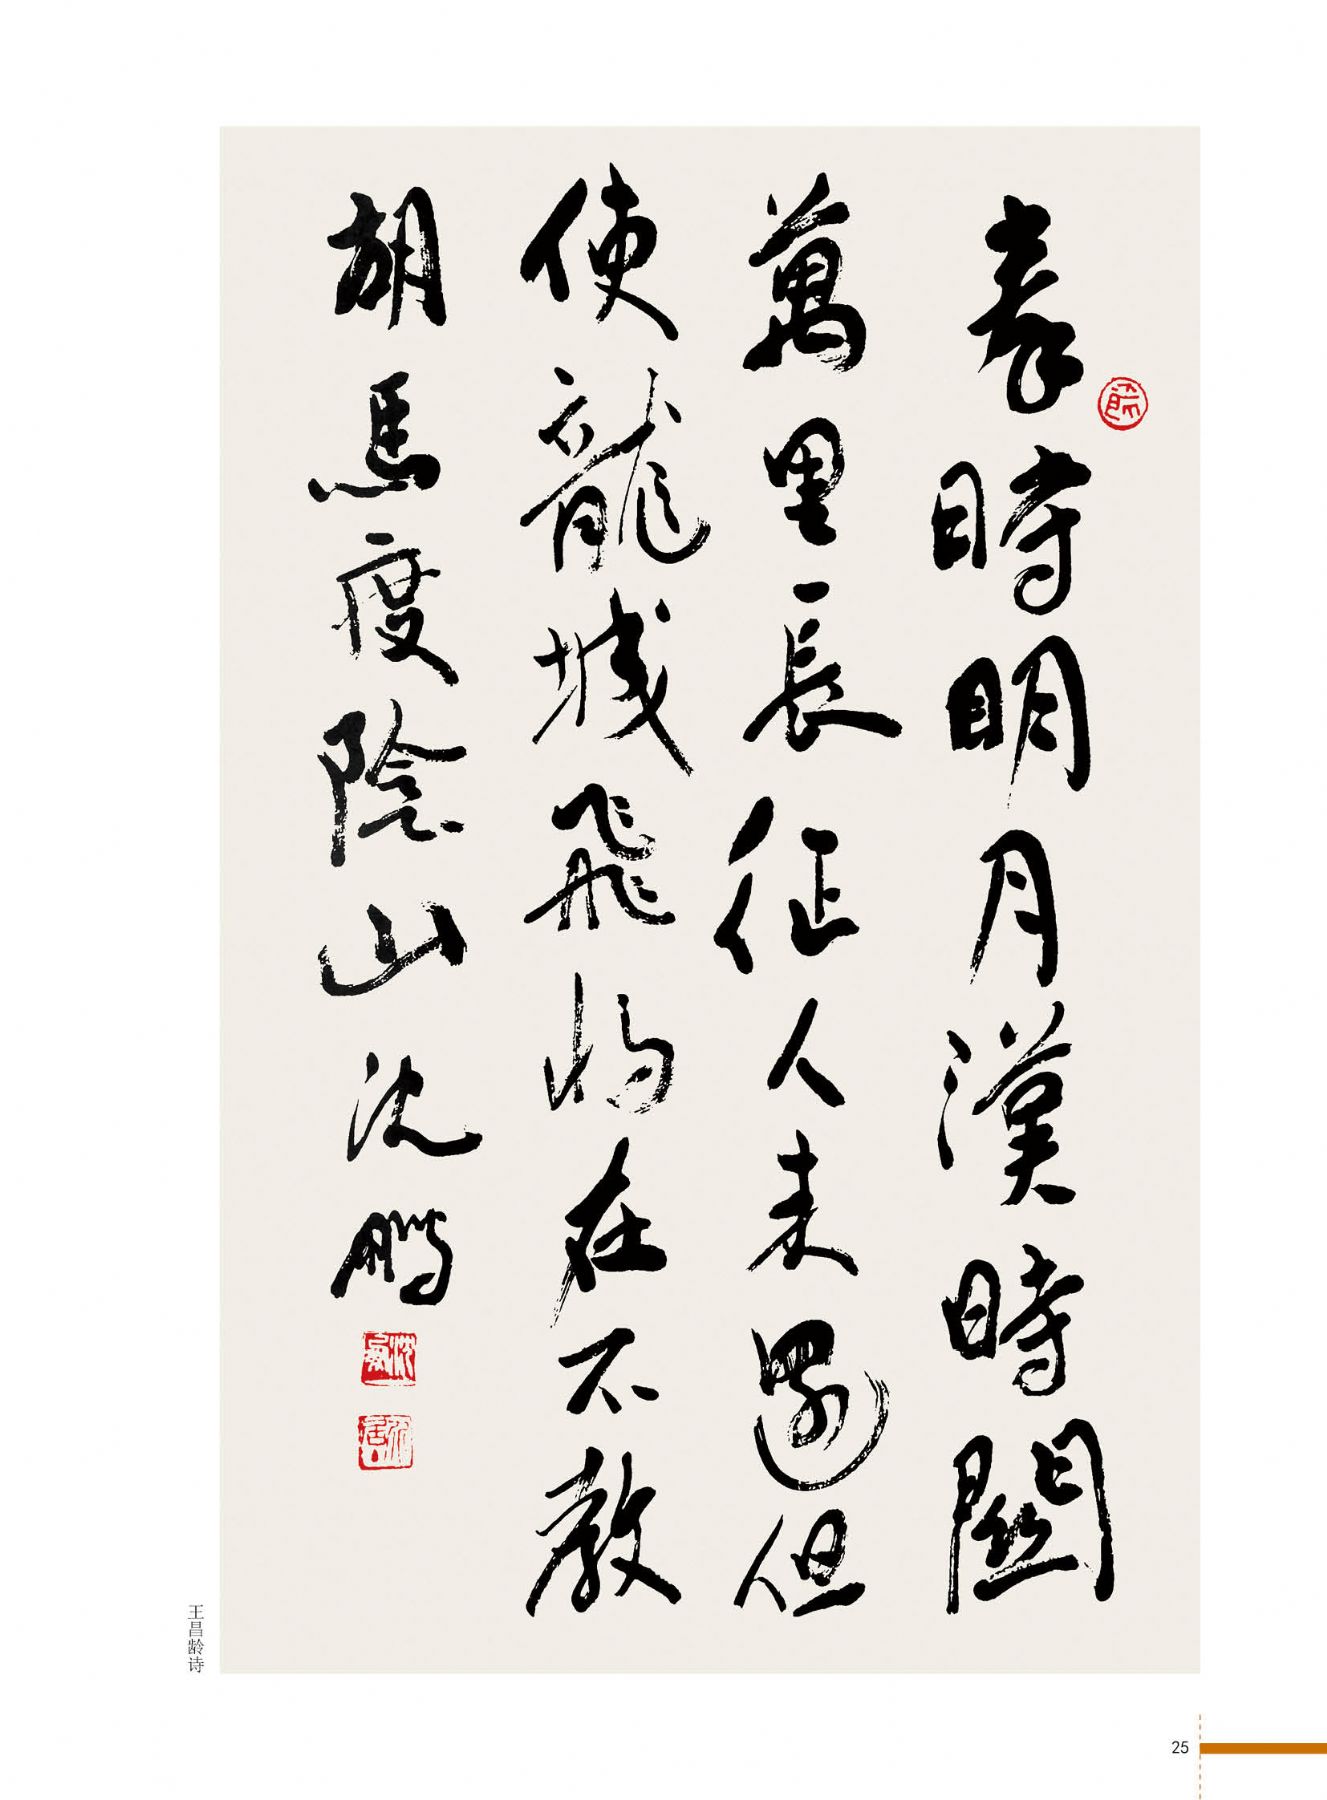 秦時明月漢時關
萬里長征人未還但
使龍城飛將在不教
胡馬度陰山沈鵬
王昌龄诗
25